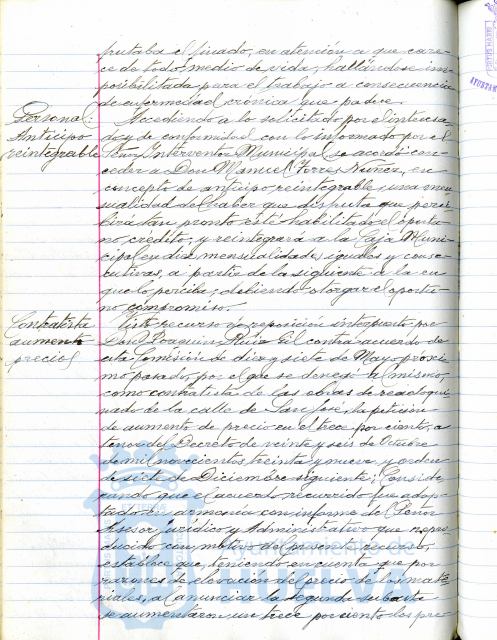 frutaba el finado, en atención a que care-
ce de todo medio de vida, hallándose im-
posibilitada para el trabajo a consecuencia
de enfermedad crónica que padece.
Personal: Anticipo reintegrable
Accediendo a lo solicitado por el interesa-
do y de conformidad con lo informado por el
Señor Interventor Municipal, se acordó con-
ceder a Don Manuel Torres Núñez, en
concepto de anticipo reintegrable, una men-
sualidad del haber que disfruta que perci-
birá tan pronto esté habilitado el oportu-
no crédito, y reintegrará a la Caja Muni-
cipal en diez mensualidades iguales y conse-
cutivas, a partir de la siguiente a la en
que lo perciba, debiendo otorgar el oportu-
no compromiso.
Contratista aumento precios
Visto recurso de reposición interpuesto por
Don Joaquín Ruiz Gil contra acuerdo de
esta Comisión de diez y siete de Mayo próxi-
mo pasado, por el que se denegó al mismo,
como contratista de las obras de readoqui-
nado de la calle de San José, la petición
de aumento de precio en el trece por ciento, a
tenor del Decreto de veinte y seis de Octubre
de mil novecientos treinta y nueve, y orden
de siete de Diciembre siguiente; Conside-
rando que el acuerdo recurrido fué adop-
tado en armonía con informe del Señor
Asesor Jurídico y Administrativo que repro-
ducido con motivo del presente recurso,
establece que, teniendo en cuenta que por
razones de elevación del precio de los mate-
riales, al anunciar la segunda subasta
se aumentaron un trece por ciento los pre-